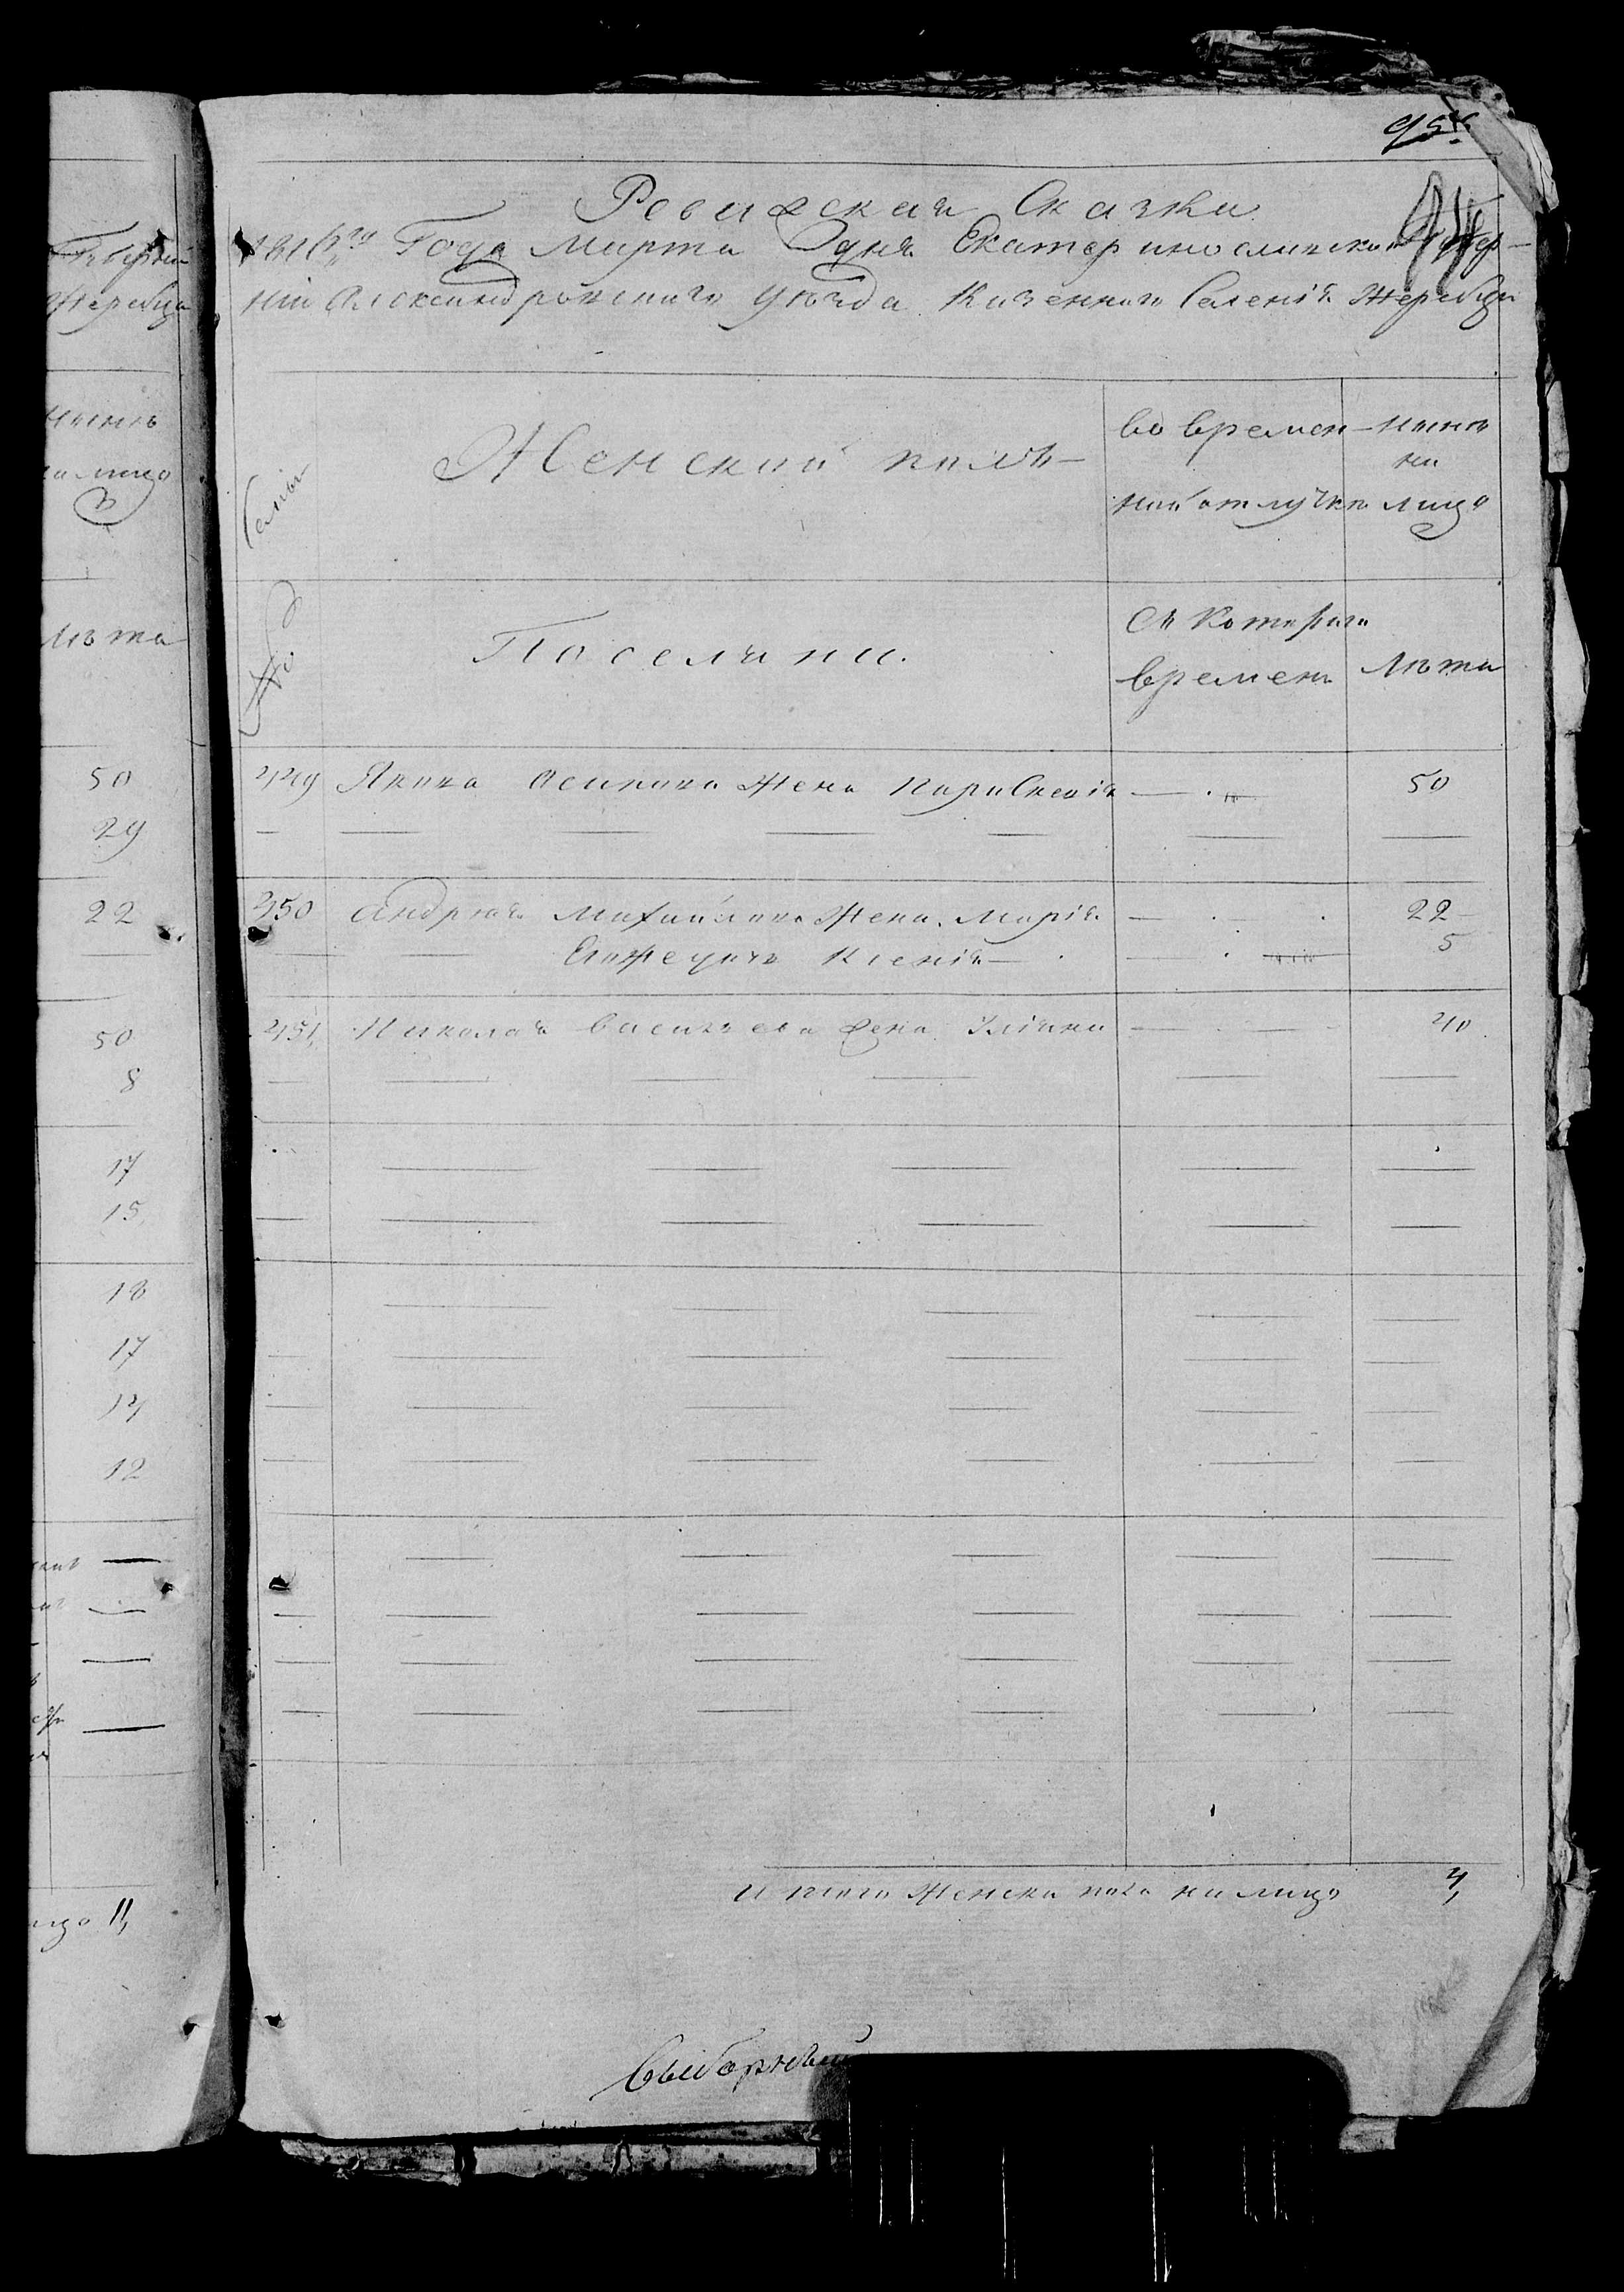 954
94
Ревизская Сказка
1816го Года Марта дня Екатеринославской Губер-
нии Александровского Уезда Казенного Селения Жеребца
Семьи
Женский полъ
во времен-
ной отлучке
ныне
на
лицо
№
Поселяне.
съ Котораго
времени
Лѣта
449 Якова Осипова Жена Парасковія 50
450 Андрея Михайлова Жена Марія 22
Его Жедочь Ксенія 5
451 Николая Васильева Жена Ульяна 40
Итого Женска пола на лицо 4
Выборный
Жеребца
на лицо
Лѣта
50
29
22
50
8
17
15
18
17
14
12
11